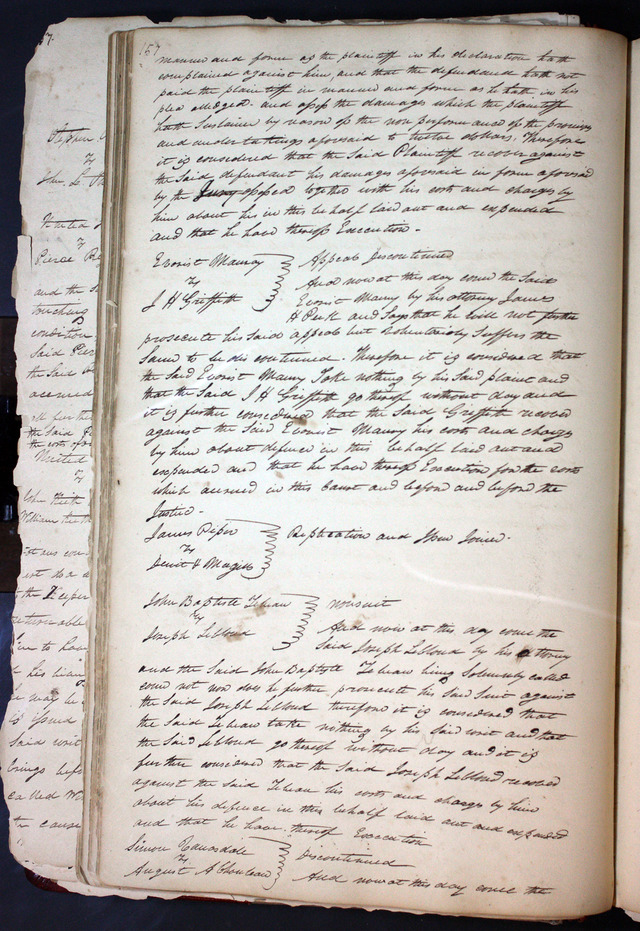 157
manner and form as the plaintiff in his declaration hath
complained against him, and that the defendant hath not
paid the plaintiff in manner and form as he hath in his
plea alledged. and assess the damages which the plaintiff
hath Sustained by reason of the non performance of the promises
and undertakings aforesaid to twelve dollars, Therefore
it is considered that the Said Plaintiff recover against
the Said defendant his damages aforesaid in form aforesaid
by the Jury assessed together with his costs and charges by
him about his in this behalf laid out and expended
and that he have thereof Execution.
Evarist Maury Appeal Discontinued
vs And now at this day came the Said
J H Griffith Evarist Maury by his attorney James
H Peck and Says that he will not further
prosecute his said appeal but voluntarily Suffers the
Same to be discontinued. Therefore it is considered that
the Said Evarist Maury Take nothing by his Said plaint and
that the Said J H Griffith go thereof without day and
it is further considered that the Said Griffith recover
against the Said Evarist Maury his costs and charges
by him about defence in this behalf laid out and
expended and that he have thereof Execution for the costs
which accrued in this Court and before and before the
Justice.
James Piper Replication and Issue Joined.
vs
John Baptiste Lebeau nonsuit
vs And now at this day came the
Joseph Leblond Said Joseph Leblond by his attorney
and the Said John Baptiste Lebeau being Solemnly called
came not nor does he further prosecute his Said Suit against
the Said Joseph Leblond therefore it is considered that
the Said Lebeau take nothing by his Said writ and that
the Said Leblond go thereof without day and it is
further considered that the Said Joseph Leblond recover
against the Said Lebeau his costs and charges by him
about his defence in this behalf laid out and expended
and that he have thereof Execution
Simon Discontinued
vs
August A Chouteau And now at this day came the